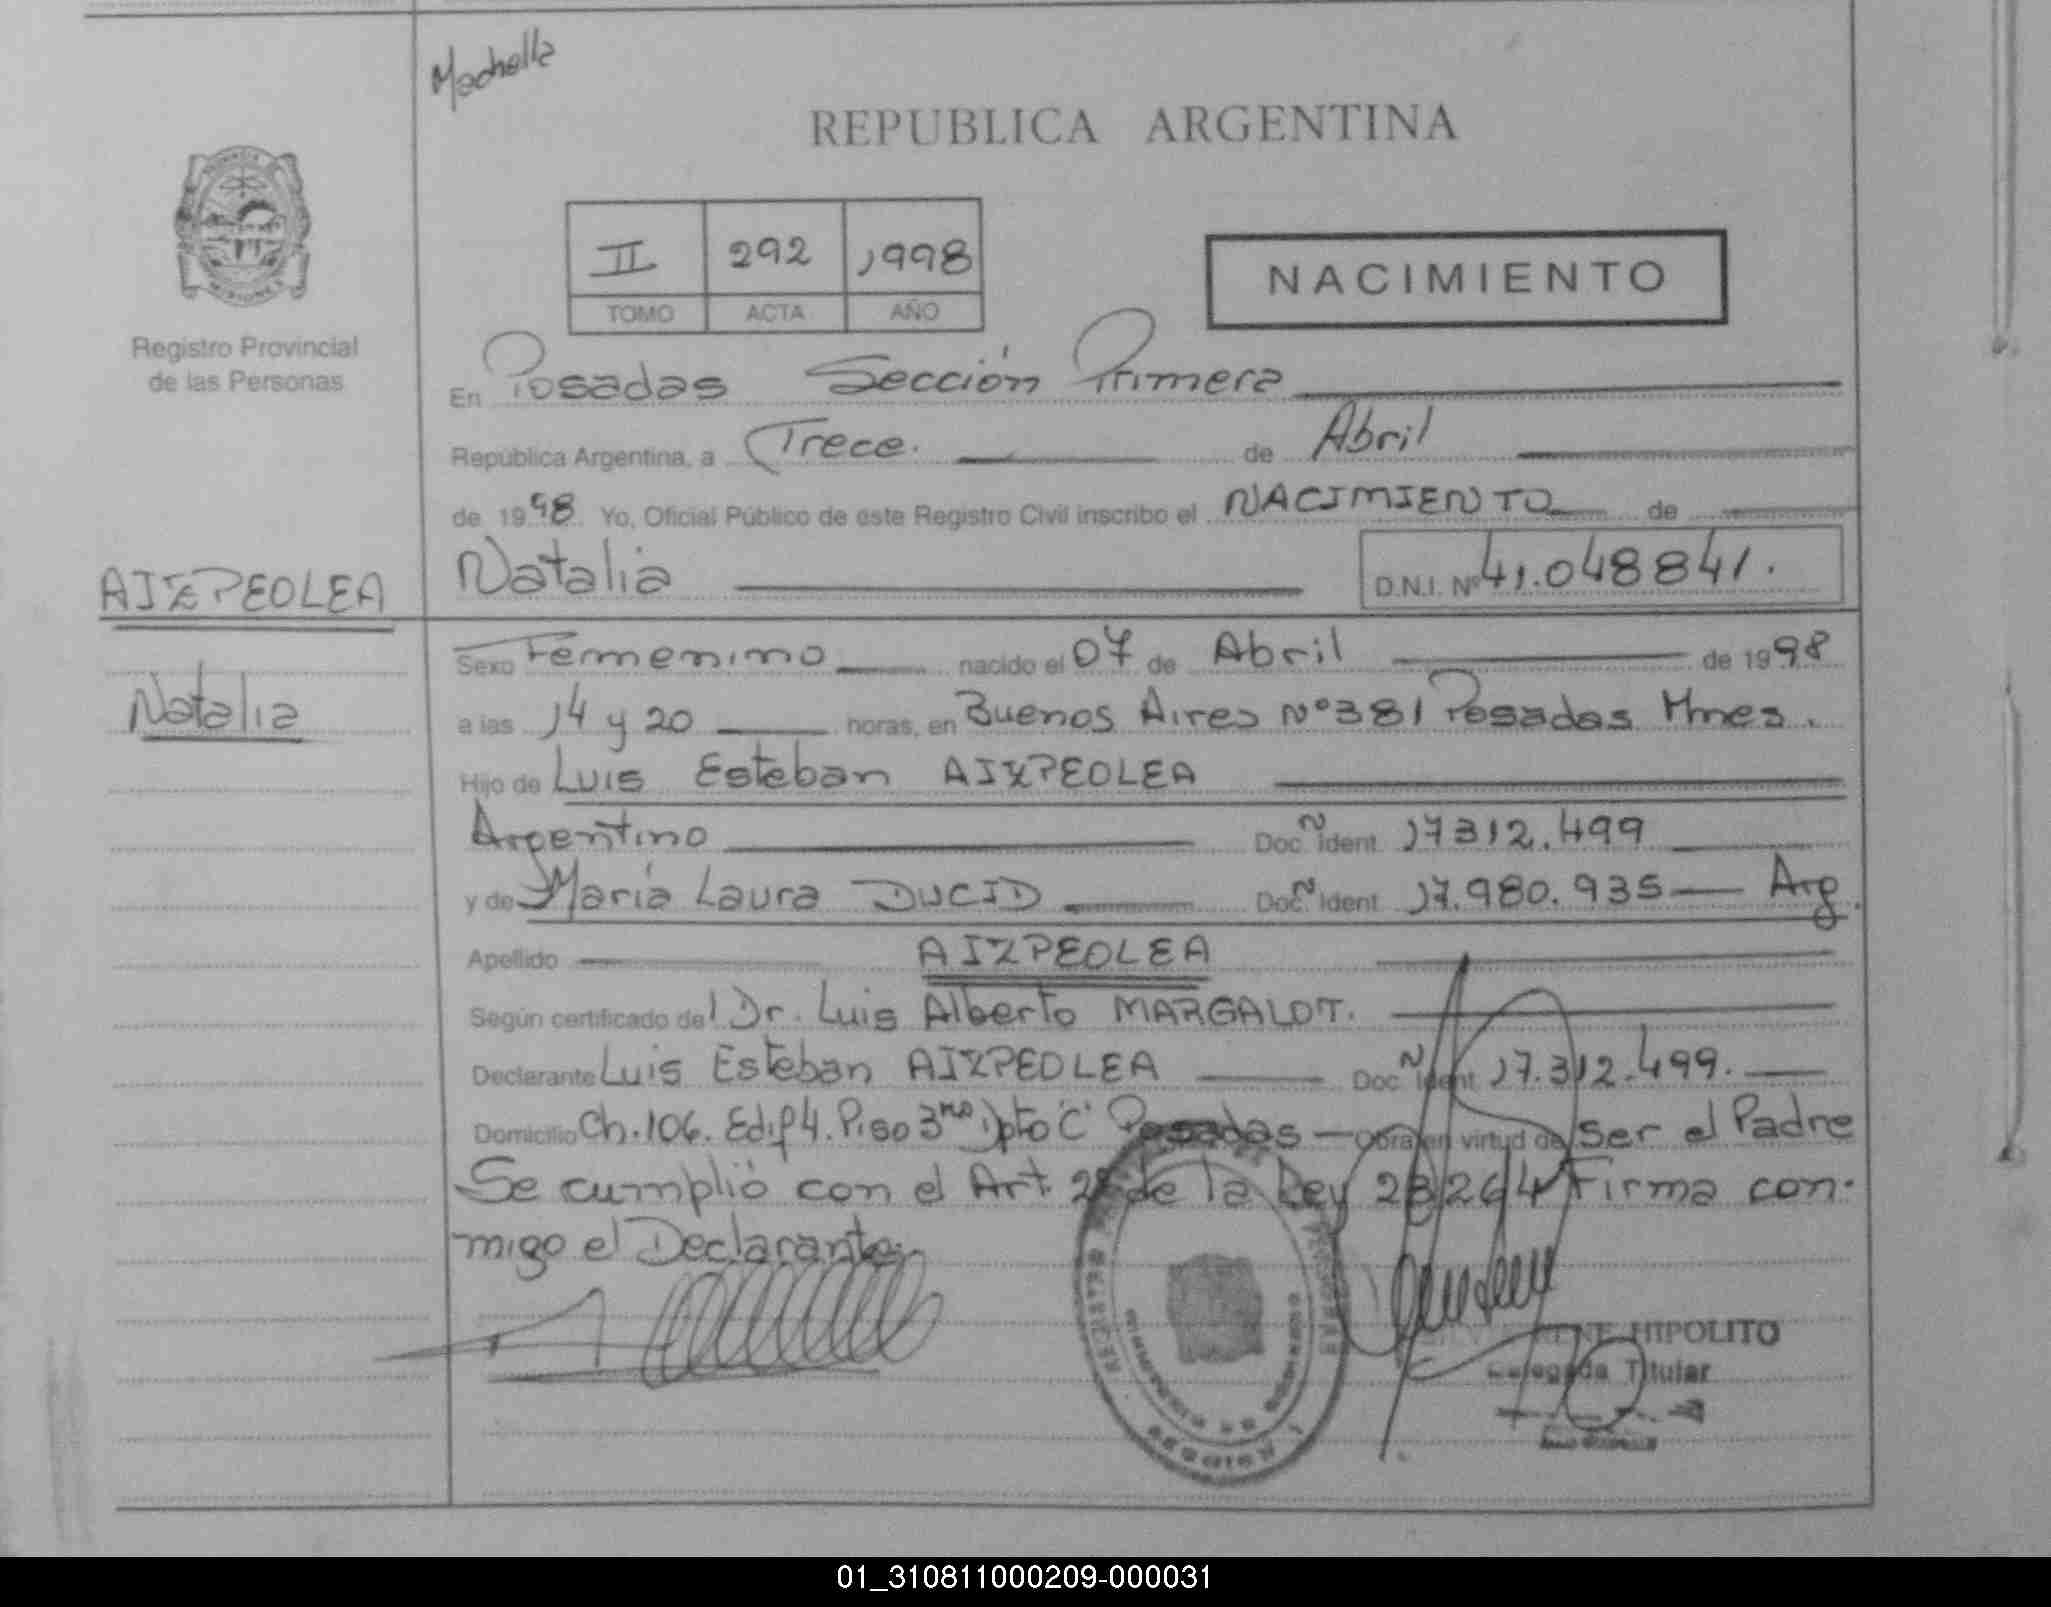 Machella
REPUBLICA ARGENTINA
II 292 1998
TOMO ACTA AÑO
NACIMIENTO
MISIONES
Registro Provincial
de las Personas
En Posadas Sección Primera
República Argentina, a Trece. de Abril
de 1998 Yo, Oficial Público de este Registro Civil inscribo el NACIMIENTO de
Natalia D.N.I. Nº 41.048841.
AIZPEOLEA
Natalia
Sexo Femenino nacido el 07 de Abril de 1998
a las 14 y 20 horas, en Buenos Aires Nº 381 Posadas Mnes.
Hijo de Luis Esteban AIZPEOLEA
Argentino Doc. N Ident. 17312.499
y de María Laura DUCID Doc. N Ident. 17.980.935 Arg.
Apellido AIZPEOLEA
Según certificado del Dr. Luis Alberto MARGALOT.
Declarante Luis Esteban AIZPEOLEA Doc. N Ident 17.312.499.
Domicilio Ch. 106. Edif 4. Piso 3ro Dpto "C" Posadas Obra en virtud de Ser el Padre
Se cumplió con el Art. de la Ley 23264 Firma con-
migo el Declarante
HIPOLITO
Delegada Titular
01_310811000209-000031